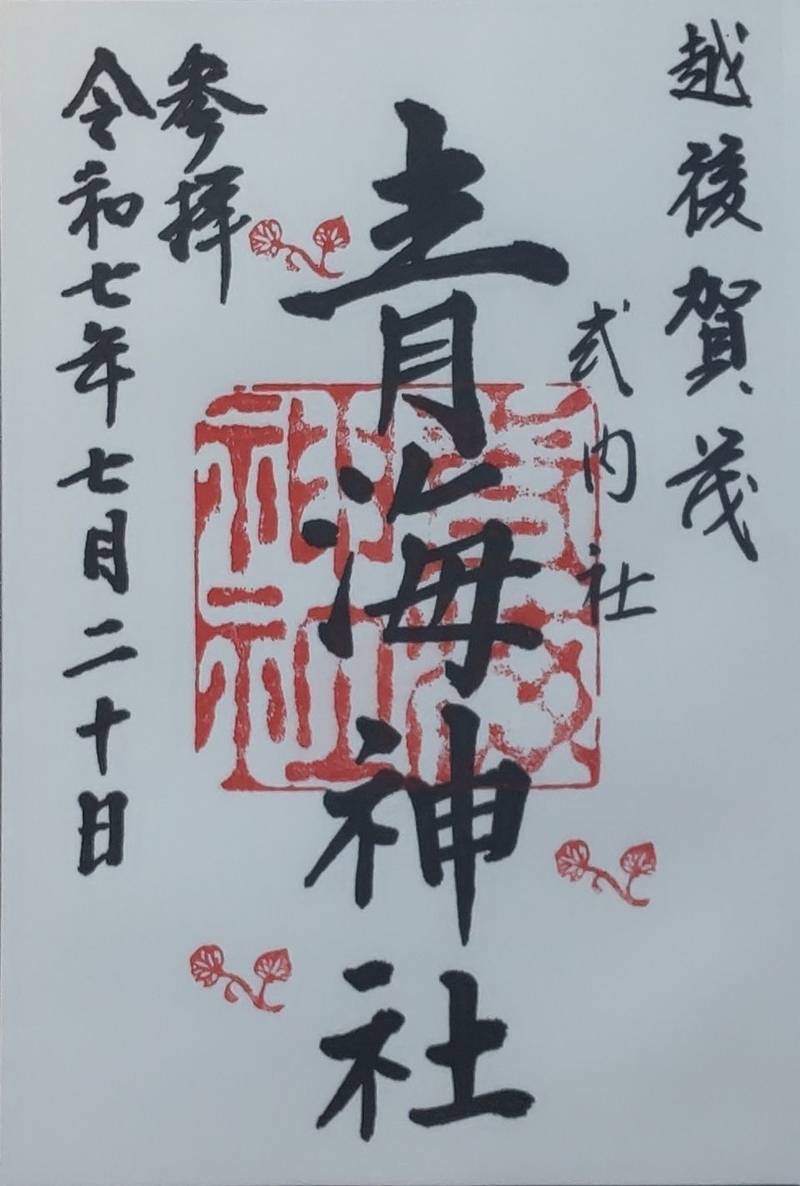 越後賀茂
式内社
青海神社
参拝
令和七年七月二十日
青海神社